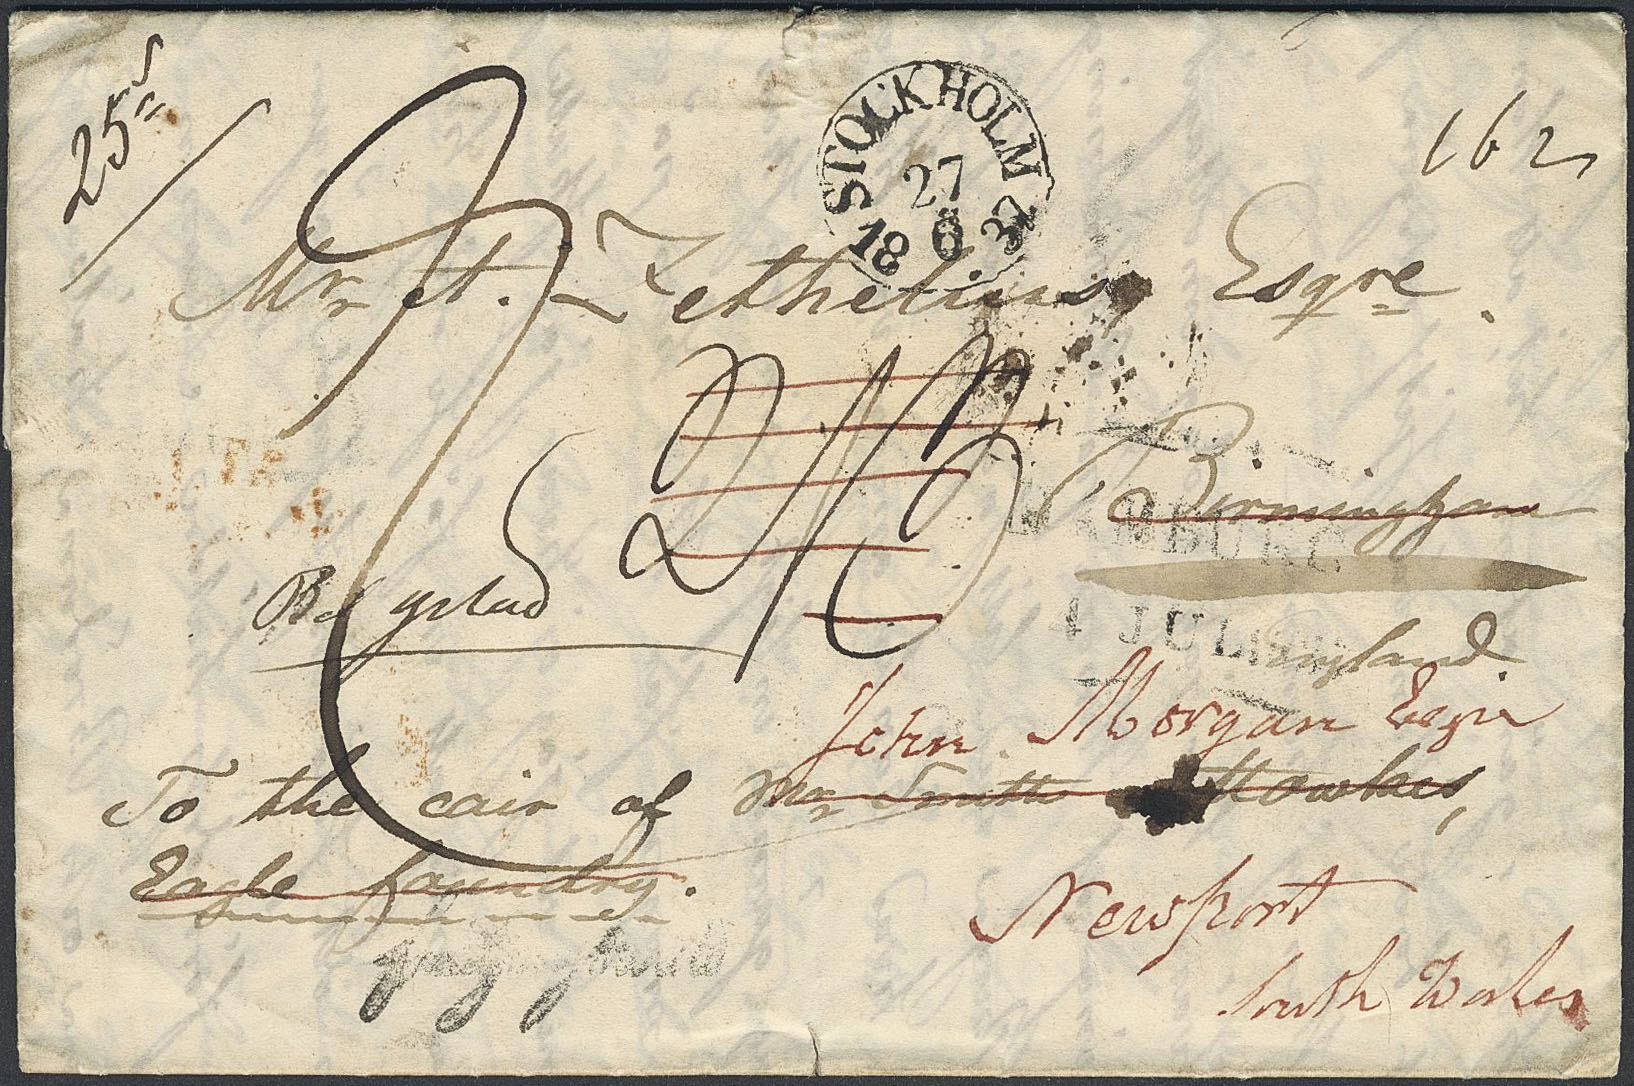 25
STOCKHOLM
27
18 6 37
162
Mr A. Zethelius, Esqre.
Birmingham
HAMBURG
4 JUL
England
John Morgan Esqre
To the cair of Mr Smith Hawkes,
Eagle foundry.
Newport
South Wales